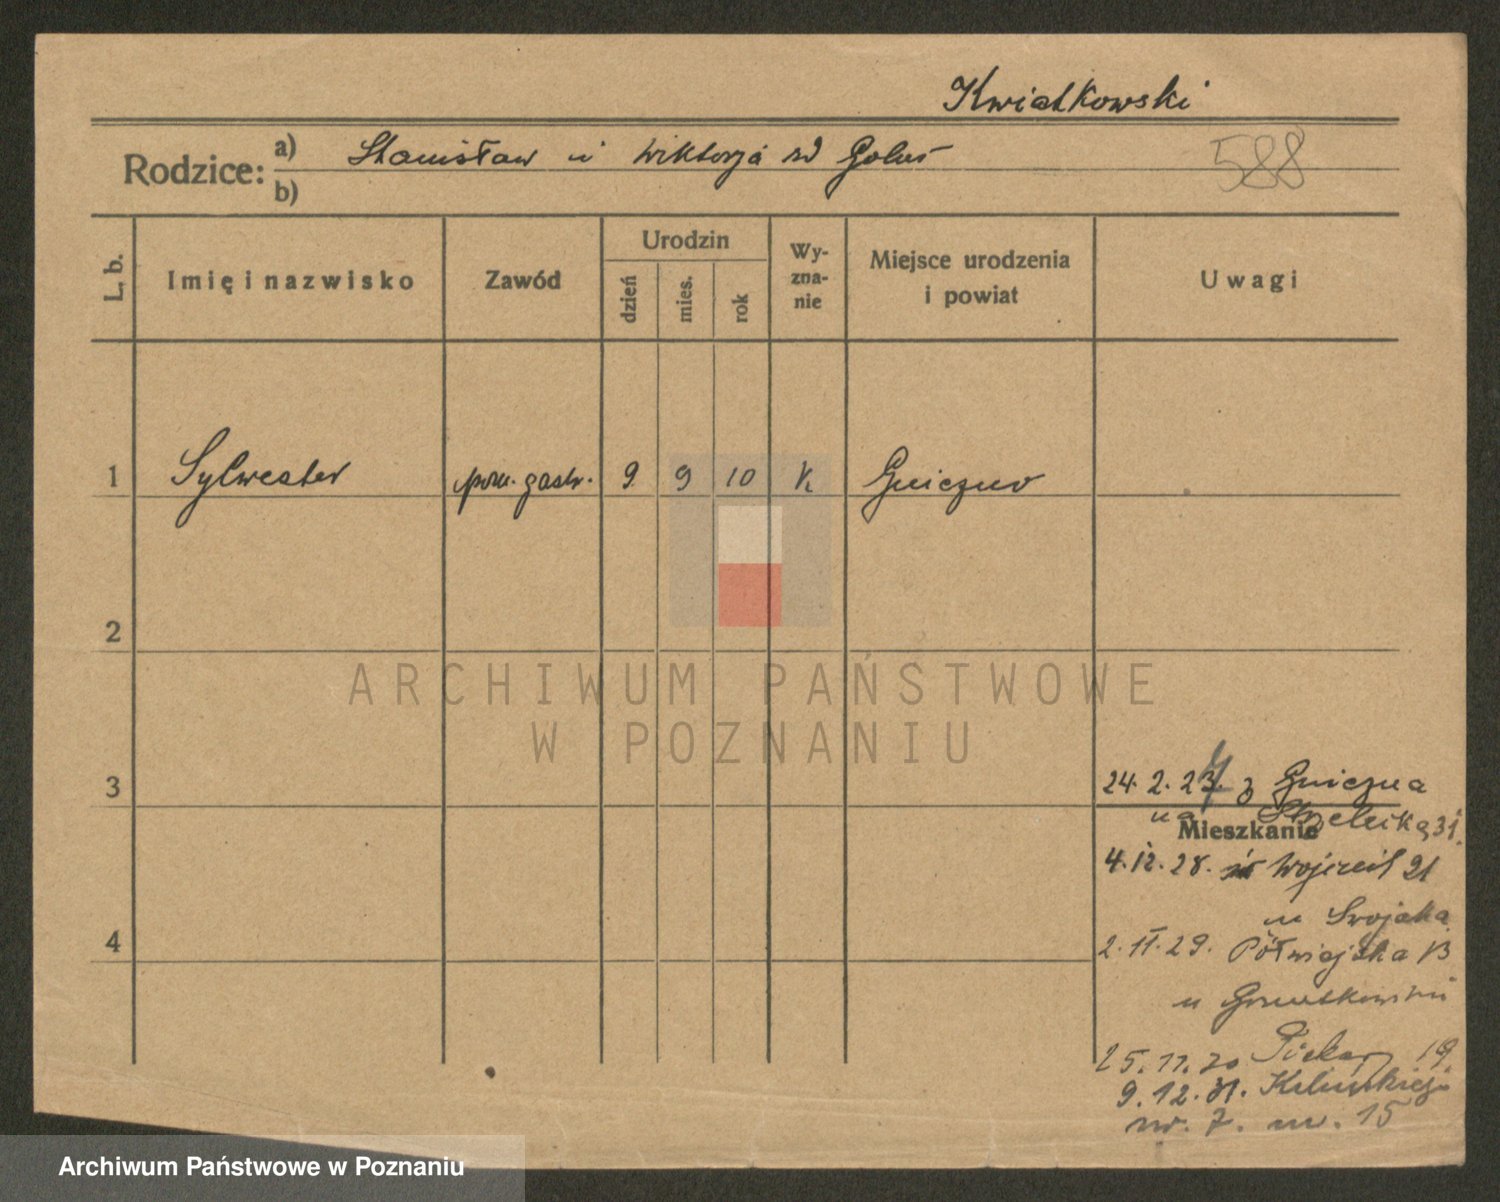 Kwiatkowski
Rodzice: a) Stanisław i Wiktorja
b)
588
L. b.
Imię i nazwisko
Zawód
Urodzin
dzień
mies.
rok
Wy-
zna-
nie
Miejsce urodzenia
i powiat
Uwagi
1 Sylwester pom. gastr. 9 9 10 k
2
3
4
24. 2. 27 z
na 31.
Mieszkanie
4. 12. 28. 21
2. 11. 29. Półwiejska 13
u
25. 11. 30 Piekary 19
9. 12. 31.
nr. 7. m. 15
ARCHIWUM PAŃSTWOWE
W POZNANIU
Archiwum Państwowe w Poznaniu